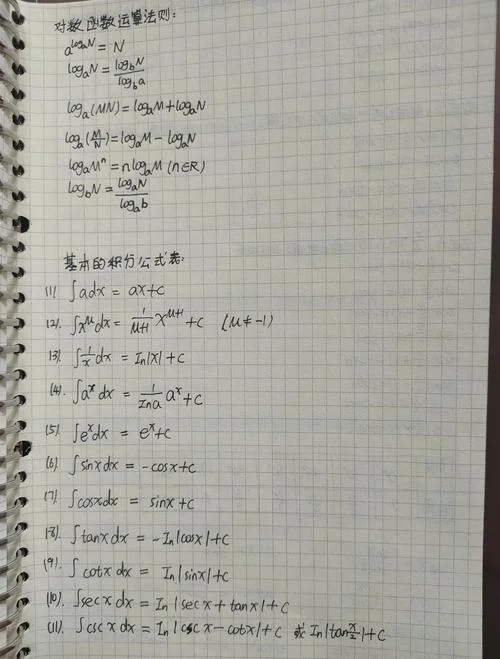 对数函数运算法则:
a^{log_a N} = N
log_a N = \frac{log_b N}{log_b a}
log_a (MN) = log_a M + log_a N
log_a (\frac{M}{N}) = log_a M - log_a N
log_a M^n = n log_a M (n∈R)
log_b N = \frac{log_a N}{log_a b}
基本的积分公式表:
(1) ∫adx = ax+c
(2). ∫x^μ dx = \frac{1}{μ+1} x^{μ+1} + c (μ ≠ -1)
(3) ∫\frac{1}{x} dx = In|x| + c
(4). ∫a^x dx = \frac{1}{Ina} a^x + c
(5). ∫e^x dx = e^x + c
(6). ∫sinx dx = -cosx + c
(7). ∫cosx dx = sinx + c
(8). ∫tanx dx = -In|cosx| + c
(9). ∫cotx dx = In|sinx| + c
(10). ∫sec x dx = In|sec x + tanx| + c
(11). ∫csc x dx = In|csc x - cotx| + c 或 In|tan\frac{x}{2}| + c